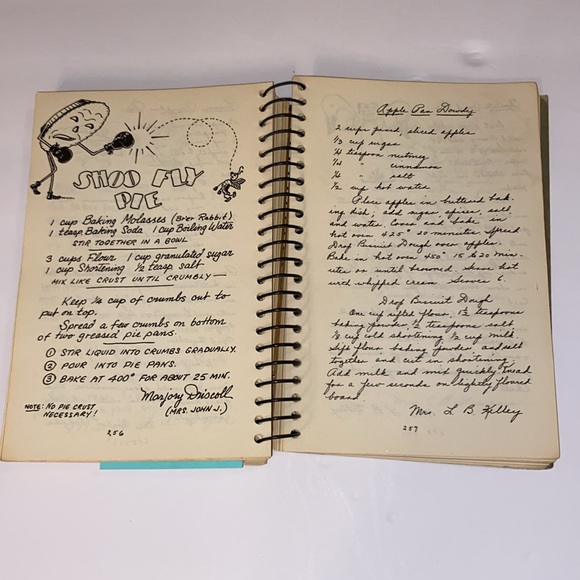 SHOO FLY
PIE
1 cup Baking Molasses (Br'er Rabbit)
1 teasp Baking Soda 1 cup Boiling Water
STIR TOGETHER IN A BOWL
3 cups Flour 1 cup granulated sugar
1 cup Shortening ½ teasp salt
MIX LIKE CRUST UNTIL CRUMBLY—
Keep ¼ cup of crumbs out to
put on top.
Spread a few crumbs on bottom
of two greased pie pans.
① STIR LIQUID INTO CRUMBS GRADUALLY.
② POUR INTO PIE PANS.
③ BAKE AT 400° FOR ABOUT 25 MIN.
Marjory Driscoll
(MRS. JOHN J.)
NOTE: NO PIE CRUST
NECESSARY!
256
Apple Pan Dowdy
2 cups pared, sliced apples
⅓ cup sugar
¼ teaspoon nutmeg
¼ " cinnamon
¼ " salt
½ cup hot water
Place apples in buttered bak-
ing dish; add sugar, spices, salt,
and water. Cover and bake in
hot oven 425° 20 minutes. Spread
Drop Biscuit Dough over apples.
Bake in hot oven 450° 15 to 20 min-
utes or until browned. Serve hot
with whipped cream. Serves 6.
Drop Biscuit Dough
One cup sifted flour, 1½ teaspoons
baking powder, ½ teaspoons salt
⅛ cup cold shortening ½ cup milk
Sift flour baking powder and salt
together and cut in shortening.
Add milk and mix quickly. Knead
for a few seconds on lightly floured
board.
Mrs. L B Kelley
257